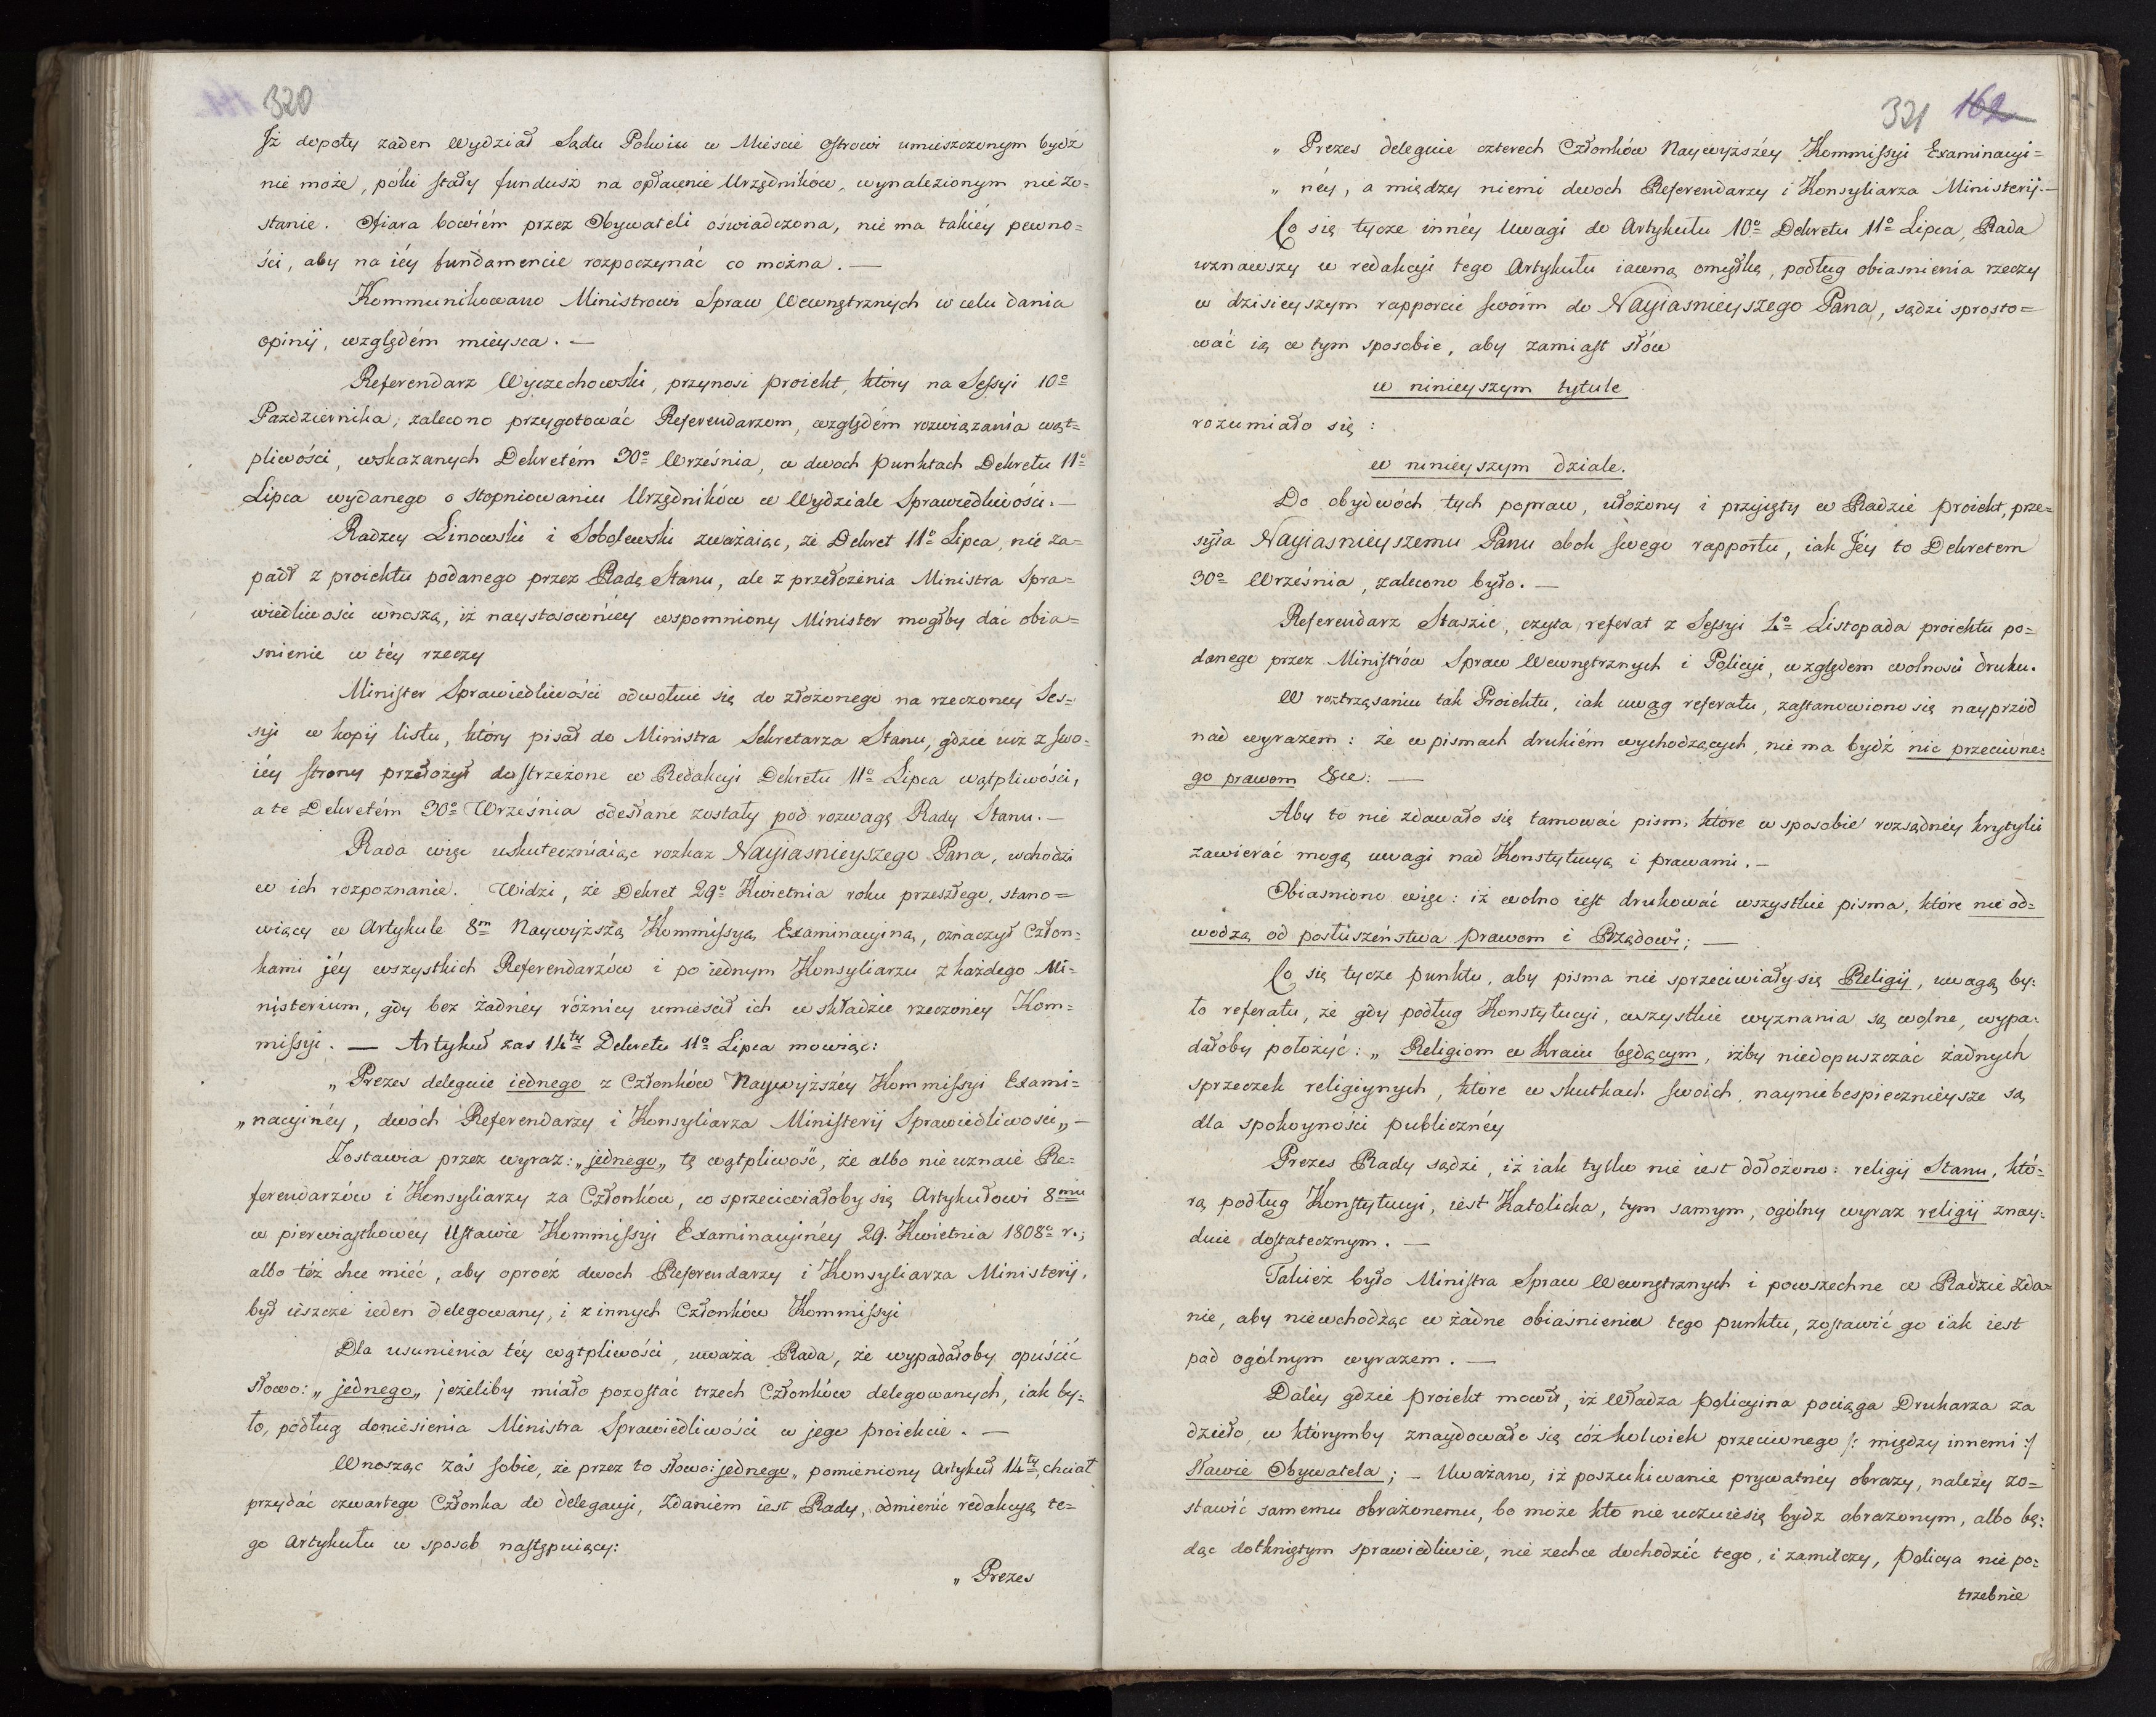 320
Jż dopoty żaden Wydział Sądu Pokoiu w Mieście Ostrowi umieszczonym bydź
nie może, póki stały fundusz na opłacenie Urzędników, wynalezionym nie zo=
stanie. Ofiara bowiém przez Obywateli oświadczona, nie ma takiéy pewno=
ści, aby na iéy fundamencie rozpoczynać co można. —
Kommunikowano Ministrowi Spraw Wewnętrznych w celu dania
opinij, względém mieysca. —
Referendarz Wyczechowski, przynosi proiekt, który na Sessyi 10º
Pazdziernika, zalecono przygotować Referendarzom, względém rozwiązania wąt=
pliwości, wskazanych Dekretém 30º Września, w dwoch punktach Dekretu 11º
Lipca wydanego o stopniowaniu Urzędników w Wydziale Sprawiedliwości. —
Radzcy Linowski i Sobolewski zważaiąc, że Dekret 11º Lipca, nie za=
padł z proiektu podanego przez Radę Stanu, ale z przełożenia Ministra Spra=
wiedliwości wnoszą, iż naystosowniey wspomniony Minister mogłby dać obia=
snienie w téy rzeczy
Minister Sprawiedliwości odwołuie się do złożonego na rzeczoney Ses=
syi w kopij listu, który pisał do Ministra Sekretarza Stanu, gdzie iuż z swo=
iéy strony przełożył dostrzeżone w Redakcyi Dekretu 11º Lipca wątpliwości,
a te Dekretém 30º Września odesłane zostały pod rozwagę Rady Stanu. —
Rada więc uskuteczniaiąc rozkaz Nayiasnieyszego Pana, wchodzi
w ich rozpoznanie. Widzi, że Dekret 29º Kwietnia roku przeszłego, stano=
wiący w Artykule 8m Naywyższą Kommissyą Examinacyiną, oznaczył Człon=
kami jéy wszystkich Referendarzów i po iednym Konsyliarzu z każdego Mi=
nisterium, gdy bez żadnéy różnicy umieścił ich w składzie rzeczoney Kom=
missyi. — Artykuł zas 14ty Dekretu 11º Lipca mowiąc:
„ Prezes deleguie iednego z Członków Naywyższéy Kommissyi Exami=
„ nacyinéy, dwóch Referendarzy i Konsyliarza Ministerij Sprawiedliwości „ —
Zostawia przez wyraz: „ jednego „ tę wątpliwość, że albo nie uznaie Re=
ferendarzów i Konsyliarzy za Członków, co sprzeciwiałoby się Artykułowi 8mu
w pierwiastkowéy Ustawie Kommissyi Examinacyinéy 29. Kwietnia 1808º r.;
albo téż chce mieć, aby oprocz dwoch Referendarzy i Konsyliarza Ministerij,
był ieszcze ieden delegowany, i z innych Członków Kommissyi
Dla usunienia téy wątpliwości, uważa Rada, że wypadałoby opuścić
słowo: „ jednego „ jeżeliby miało pozostać trzech Członków delegowanych, iak by=
ło, podług doniesienia Ministra Sprawiedliwości w jego proiekcie. —
Wnosząc zaś sobie, że przez to słowo: jednego „ pomieniony Artykuł 14ty, chciał
przydać czwartego Członka do delegacyi, Zdaniem iest Rady, odmienić redakcyą te=
go Artykułu w sposob następuiący:
„ Prezes
321 162
„ Prezes deleguie czterech Członków Naywyższéy Kommissyi Examinacyi=
„ néy, a między niemi dwoch Referendarzy i Konsyliarza Ministerij. —
Co się tycze innéy Uwagi do Artykułu 10º Dekretu 11º Lipca, Rada
uznawszy w redakcyi tego Artykułu iawną omyłkę, podług obiasnienia rzeczy
w dzisieyszym rapporcie swoim do Nayiasnieyszego Pana, sądzi sprosto=
wać ią w tym sposobie, aby zamiast słów
w ninieyszym tytule
rozumiało się :
w ninieyszym dziale.
Do obydwóch tych popraw, ułożony i przyięty w Radzie proiekt, prze=
syła Nayiasnieyszemu Panu obok swego rapportu, iak Jéy to Dekretem
30º Września, zalecono było. —
Referendarz Staszic, czyta referat z Sessyi 1º Listopada proiektu po=
danego przez Ministrów Spraw Wewnętrznych i Policyi, względem wolności druku.
W roztrząsaniu tak Proiektu, iak uwag referatu, zastanowiono się nayprzód
nad wyrazem: że w pismach drukiém wychodzących, nie ma bydź nic przeciwne=
go prawom &c: —
Aby to nie zdawało się tamować pism, które w sposobie rozsądnéy krytyki
zawierać mogą uwagi nad Konstytucyą i prawami. —
Obiasniono więc: iż wolno iest drukować wszystkie pisma, które nie od=
wodzą od posłuszeństwa prawom i Rządowi; —
Co się tycze punktu, aby pisma nie sprzeciwiały się Religij, uwagą by=
ło referatu, że gdy podług Konstytucyi, wszystkie wyznania są wolne, wypa=
dałoby położyć: „ Religiom w Kraiu będącym, iżby niedopuszczać żadnych
sprzeczek religiynych, które w skutkach swoich, nayniebespiecznieysze są
dla spokoyności publicznéy
Prezes Rady sądzi, iż iak tylko nie iest dołożono: religij Stanu, któ=
ra podług Konstytucyi, iest Katolicka, tym samym, ogólny wyraz religij znay=
duie dostatecznym. —
Takież było Ministra Spraw Wewnętrznych i powszechne w Radzie zda=
nie, aby niewchodząc w żadne obiaśnienia tego punktu, zostawić go iak iest
pod ogólnym wyrazem. —
Daléy gdzie proiekt mowił, iż Władza policyina pociąga Drukarza za
dzieło, w którymby znaydowało się cóżkolwiek przeciwnego /: między innemi :/
sławie Obywatela; — Uważano, iż poszukiwanie prywatnéy obrazy, należy zo=
stawić samemu obrażonemu, bo może kto nie uczuiesię bydź obrazonym, albo bę=
dąc dotkniętym sprawiedliwie, nie zechce dochodzić tego, i zamilczy, Policya nie po=
trzebnie